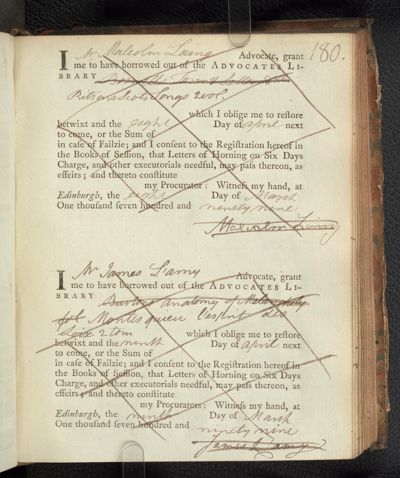 180.
I Mr Malcolm Laing Advocate, grant
me to have borrowed out of the ADVOCATES LI-
BRARY
Ritsons Scots Songs 2 vol.
which I oblige me to reſtore
betwixt and the eight Day of april next
to come, or the Sum of
in caſe of Failzie; and I conſent to the Regiſtration hereof in
the Books of Seſſion, that Letters of Horning on Six Days
Charge, and other executorials needful, may paſs thereon, as
effeirs; and thereto conſtitute
my Procurator: Witneſs my hand, at
Edinburgh, the eight Day of March
One thouſand ſeven hundred and ninety nine
Malcolm Laing
I Mr James L'amy Advocate, grant
me to have borrowed out of the ADVOCATES LI-
BRARY Burtons Anatomy of Melancholy
fol Montesquieu L'esprit des
Loix 2 tom which I oblige me to reſtore
betwixt and the ninth Day of april next
to come, or the Sum of
in caſe of Failzie; and I conſent to the Regiſtration hereof in
the Books of Seſſion, that Letters of Horning on Six Days
Charge, and other executorials needful, may paſs thereon, as
effeirs; and thereto conſtitute
my Procurators: Witneſs my hand, at
Edinburgh, the ninth Day of March
One thouſand ſeven hundred and ninety nine
James L'amy